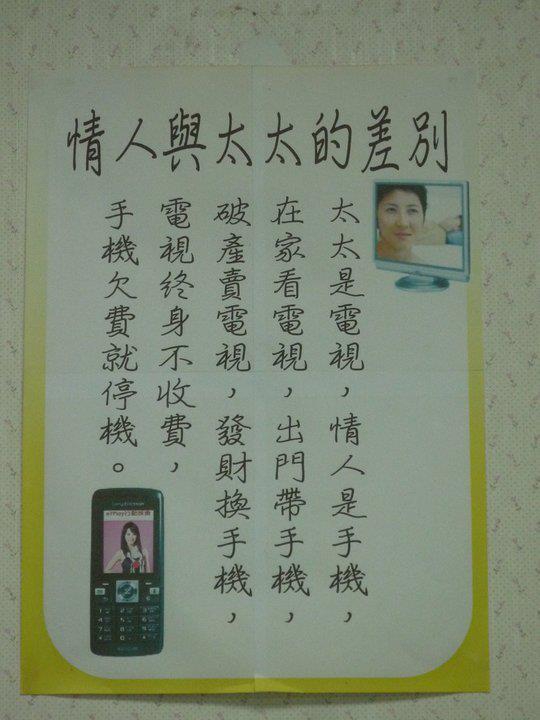 情人與太太的差別
太太是電視，情人是手機，
在家看電視，出門帶手機，
破產賣電視，發財換手機，
電視終身不收費，
手機欠費就停機。